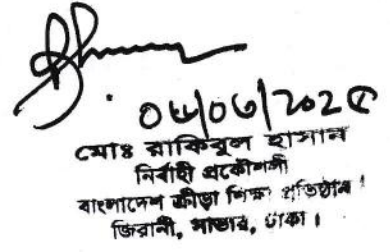 ০৬/০৩/২০২৫
মোঃ রাকিবুল হাসান
নির্বাহী প্রকৌশলী
বাংলাদেশ ক্রীড়া শিক্ষা প্রতিষ্ঠান
জিরানী, সাভার, ঢাকা।